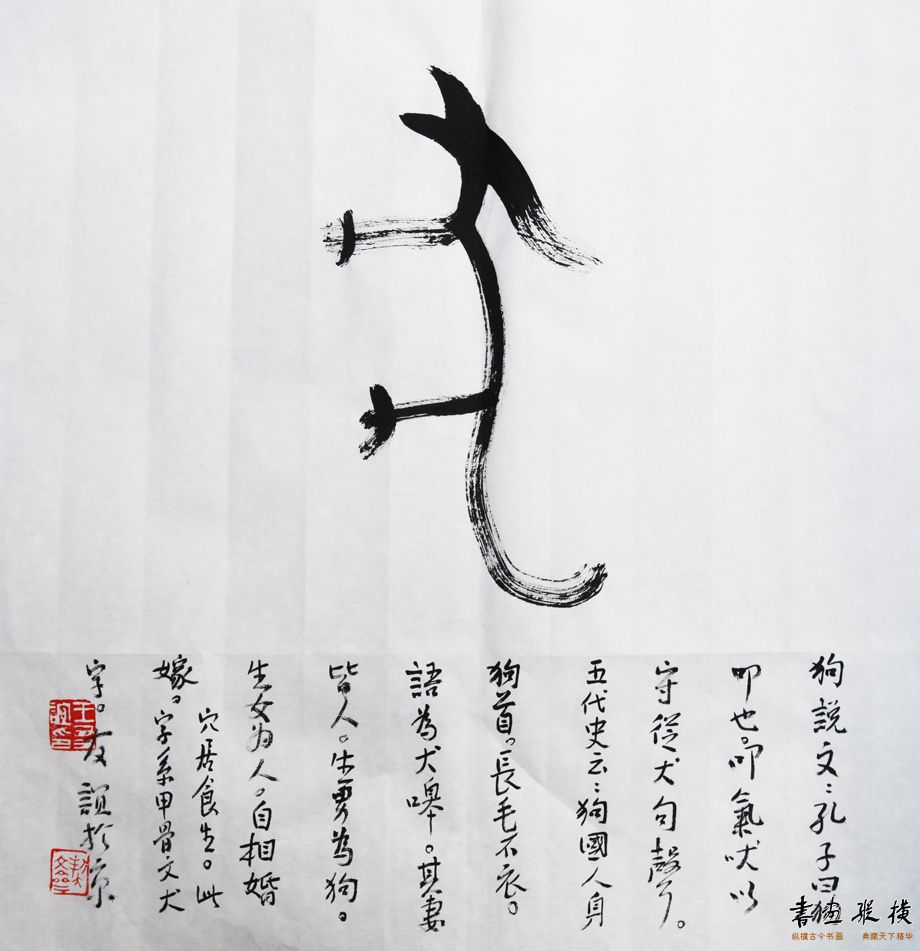 犬
狗説文：孔子曰狗
叩也。叩氣吠以
守從犬句聲。
五代史云：狗國人身
狗首。長毛不衣。
語為犬嗥。其妻
皆人。生男為狗。
生女为人。自相婚
穴居食生。此
嫁。字系甲骨文犬
字。友誼於京
書畫縱橫
纵横古今书画 典藏天下精华